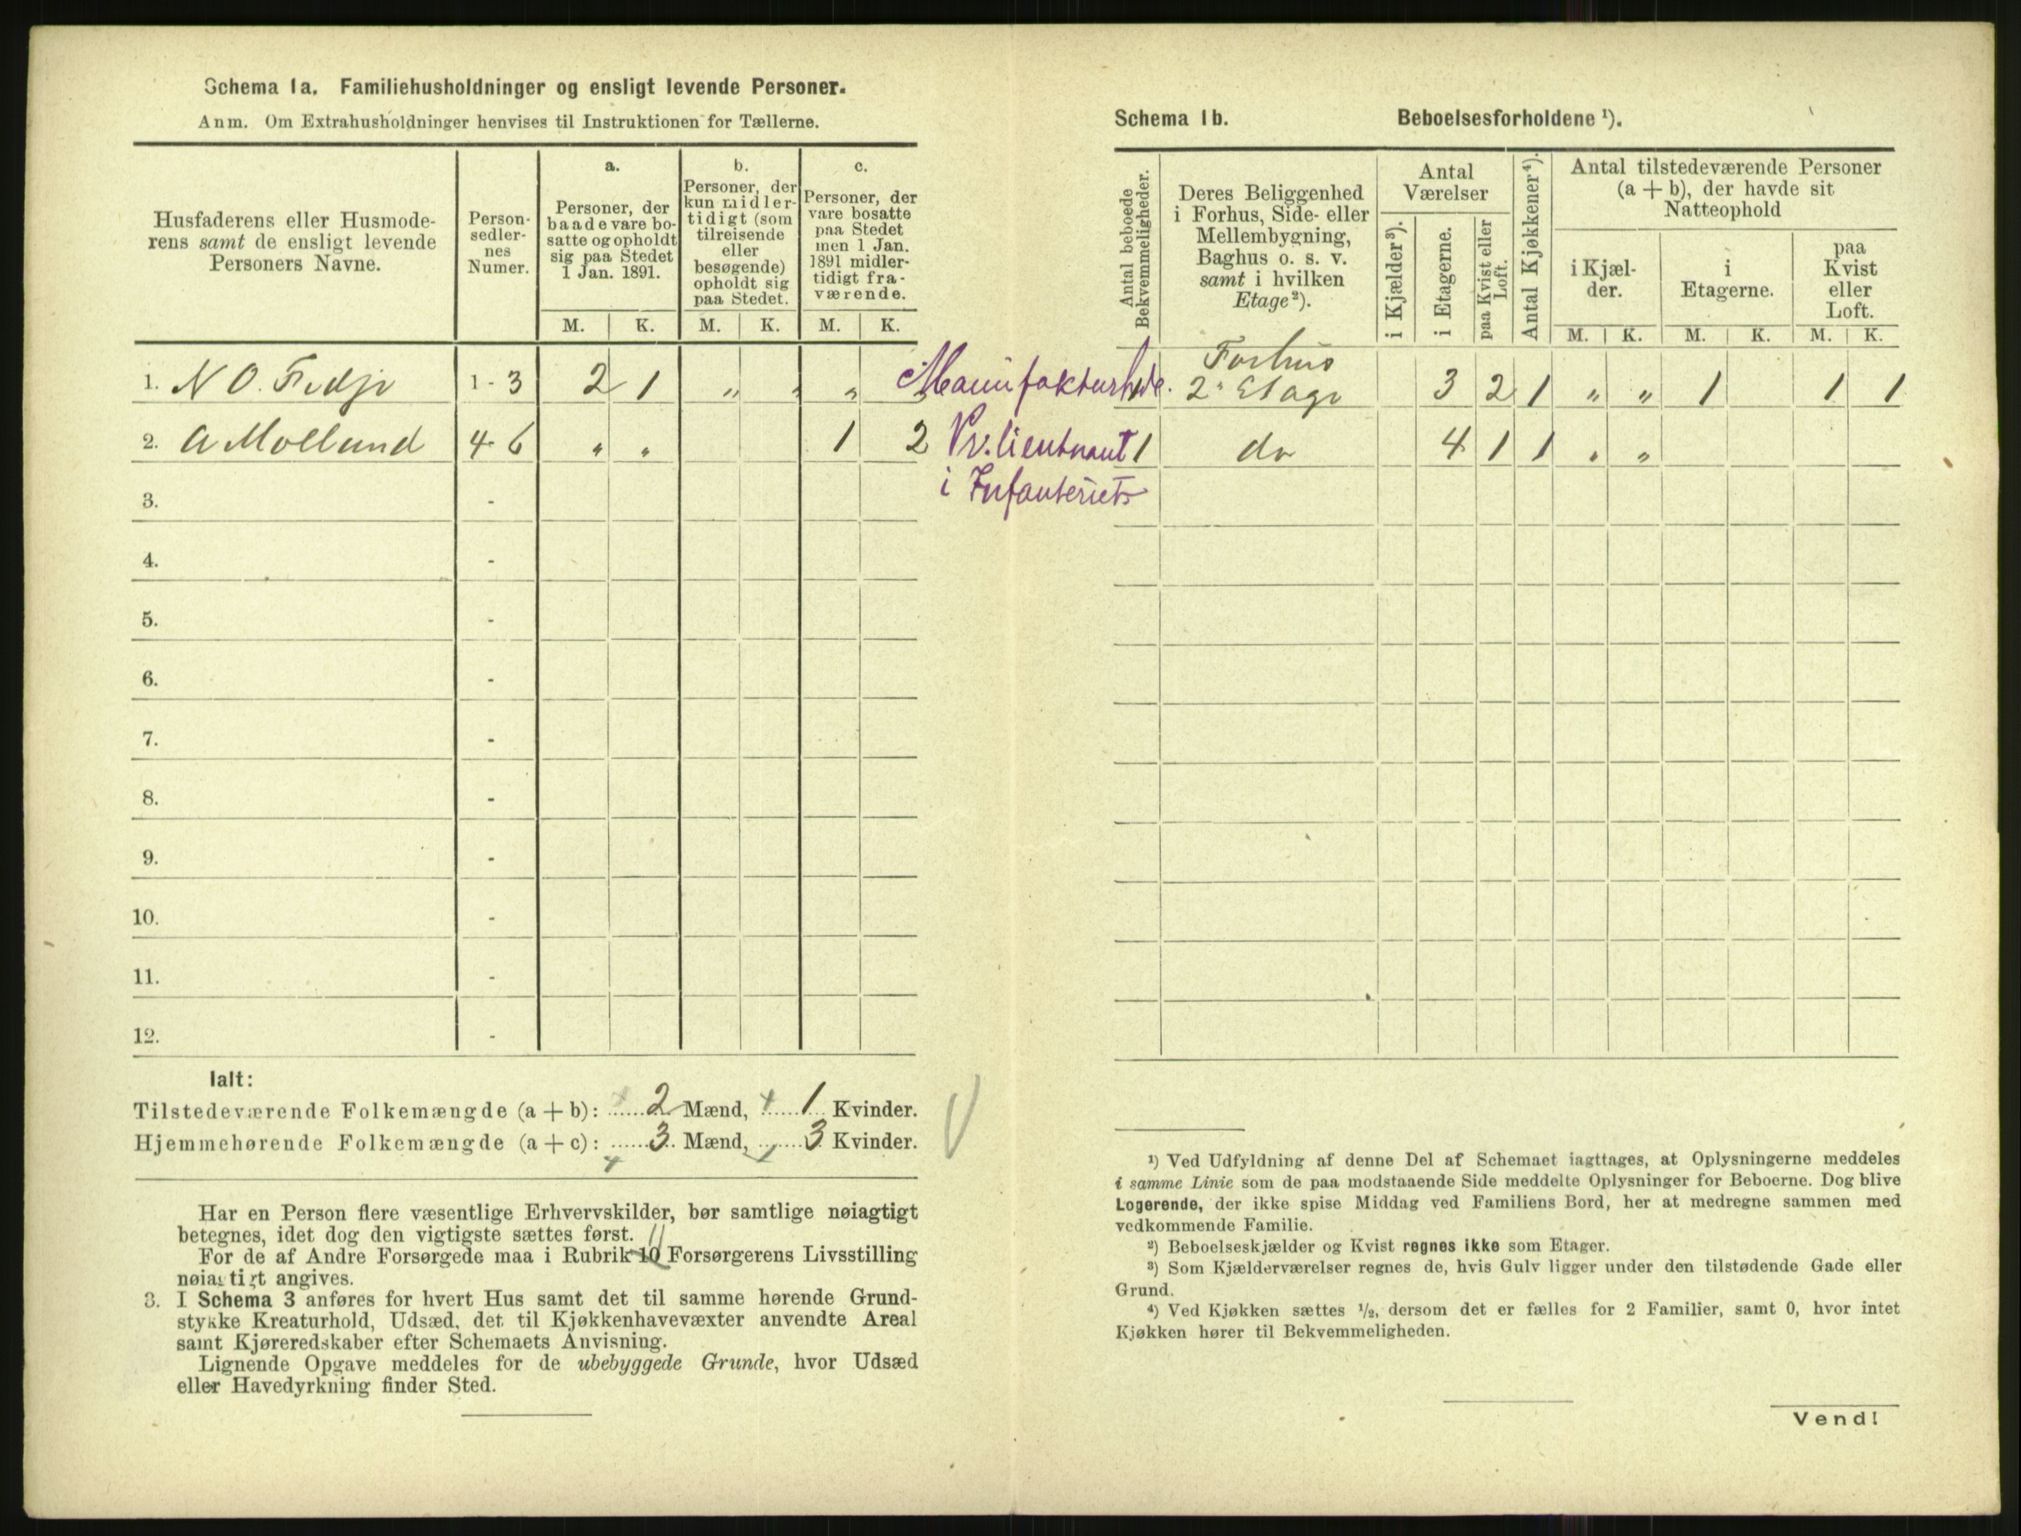 Schema 1a. Familiehusholdninger og ensligt levende Personer.
Anm. Om Extrahusholdninger henvises til Instruktionen for Tællerne.
Husfaderens eller Husmode-
rens samt de ensligt levende
Personers Navne.
Person-
sedler-
nes
Numer.
a.
Personer, der
baade vare bo-
satte og opholdt
sig paa Stedet
1 Jan. 1891.
b.
Personer, der
kun midler-
tidigt (som
tilreisende
eller
besøgende)
opholdt sig
paa Stedet.
c.
Personer, der
vare bosatte
paa Stedet
men 1 Jan.
1891 midler-
tidigt fra-
værende.
M. K. M. K. M. K.
1. N O. Fedje 1 - 3 2 1 „ „ „ Manufakturhdl.
2. A Mollund 4 - 6 „ „ 1 2 Pr. lieutnant
i Infanteriets
3. -
4. -
5. -
6. -
7. -
8. -
9. -
10. -
11. -
12. -
Ialt:
Tilstedeværende Folkemængde (a + b): 2 Mænd, 1 Kvinder.
Hjemmehørende Folkemængde (a + c): 3 Mænd, 3 Kvinder.
Har en Person flere væsentlige Erhvervskilder, bør samtlige nøiagtigt
betegnes, idet dog den vigtigste sættes først.
11
For de af Andre Forsørgede maa i Rubrik 10 Forsørgerens Livsstilling
nøiagtigt angives.
3. I Schema 3 anføres for hvert Hus samt det til samme hørende Grund-
stykke Kreaturhold, Udsæd, det til Kjøkkenhavevæxter anvendte Areal
samt Kjøreredskaber efter Schemaets Anvisning.
Lignende Opgave meddeles for de ubebyggede Grunde, hvor Udsæd
eller Havedyrkning finder Sted.
Schema 1b. Beboelsesforholdene ¹).
Antal beboede
Bekvemmeligheder.
Deres Beliggenhed
i Forhus, Side- eller
Mellembygning,
Baghus o. s. v.
samt i hvilken
Etage²).
Antal
Værelser
i Kjælder³).
i Etagerne.
paa Kvist eller
Loft.
Antal Kjøkkener⁴).
Antal tilstedeværende Personer
(a + b), der havde sit
Natteophold
i Kjæl-
der.
i
Etagerne.
paa
Kvist
eller
Loft.
M. K. M. K. M. K.
Forhus
1 2. Etage 3 2 1 „ „ 1 1 1
1 do 4 1 1 „ „
¹) Ved Udfyldning af denne Del af Schemaet iagttages, at Oplysningerne meddeles
i samme Linie som de paa modstaaende Side meddelte Oplysninger for Beboerne. Dog blive
Logerende, der ikke spise Middag ved Familiens Bord, her at medregne sammen med
vedkommende Familie.
²) Beboelseskjælder og Kvist regnes ikke som Etager.
³) Som Kjælderværelser regnes de, hvis Gulv ligger under den tilstødende Gade eller
Grund.
⁴) Ved Kjøkken sættes ½, dersom det er fælles for 2 Familier, samt 0, hvor intet
Kjøkken hører til Bekvemmeligheden.
Vend!